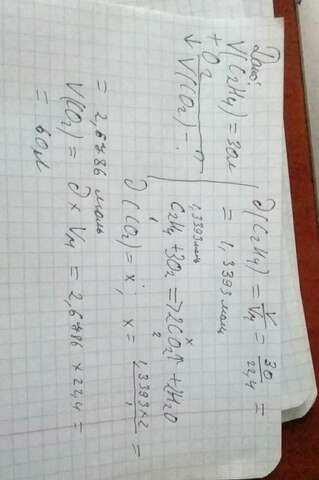 Дано:
V(C2H4) = 30л
+ O2
V(CO2) - ?
∂(C2H4) = V/Vм = 30/22,4 =
= 1,3393 моль
1,3393 моль x
C2H4 + 3O2 => 2CO2↑ + 2H2O
1 2
∂(CO2) = x; x = 1,3393×2/1 =
= 2,6786 моль
V(CO2) = ∂ × Vм = 2,6786 × 22,4 =
= 60л